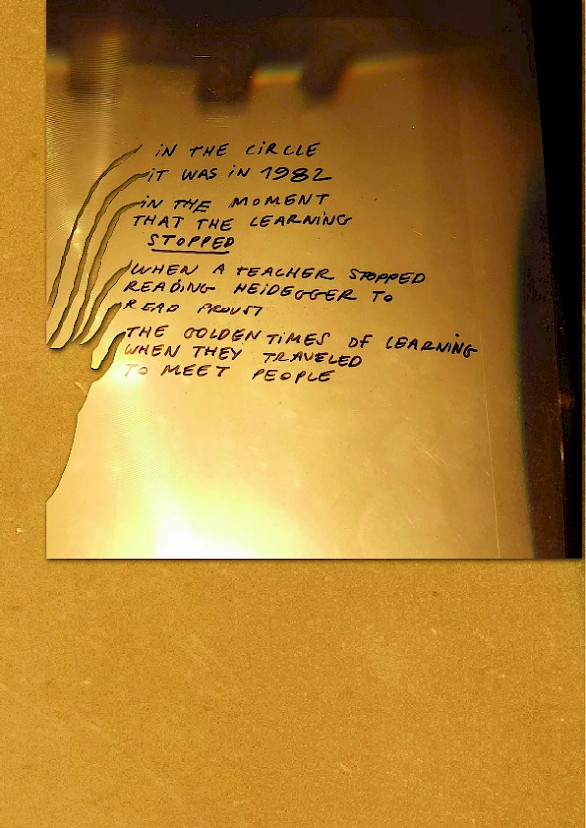 iN THE CiRCLE
iT WAS iN 1982
iN THE MOMENT
THAT THE LEARNING
STOPPED
WHEN A TEACHER STOPPED
READING HEiDEGGER TO
READ PROUST
THE GOLDEN TiMES OF LEARNING
WHEN THEY TRAVELED
TO MEET PEOPLE